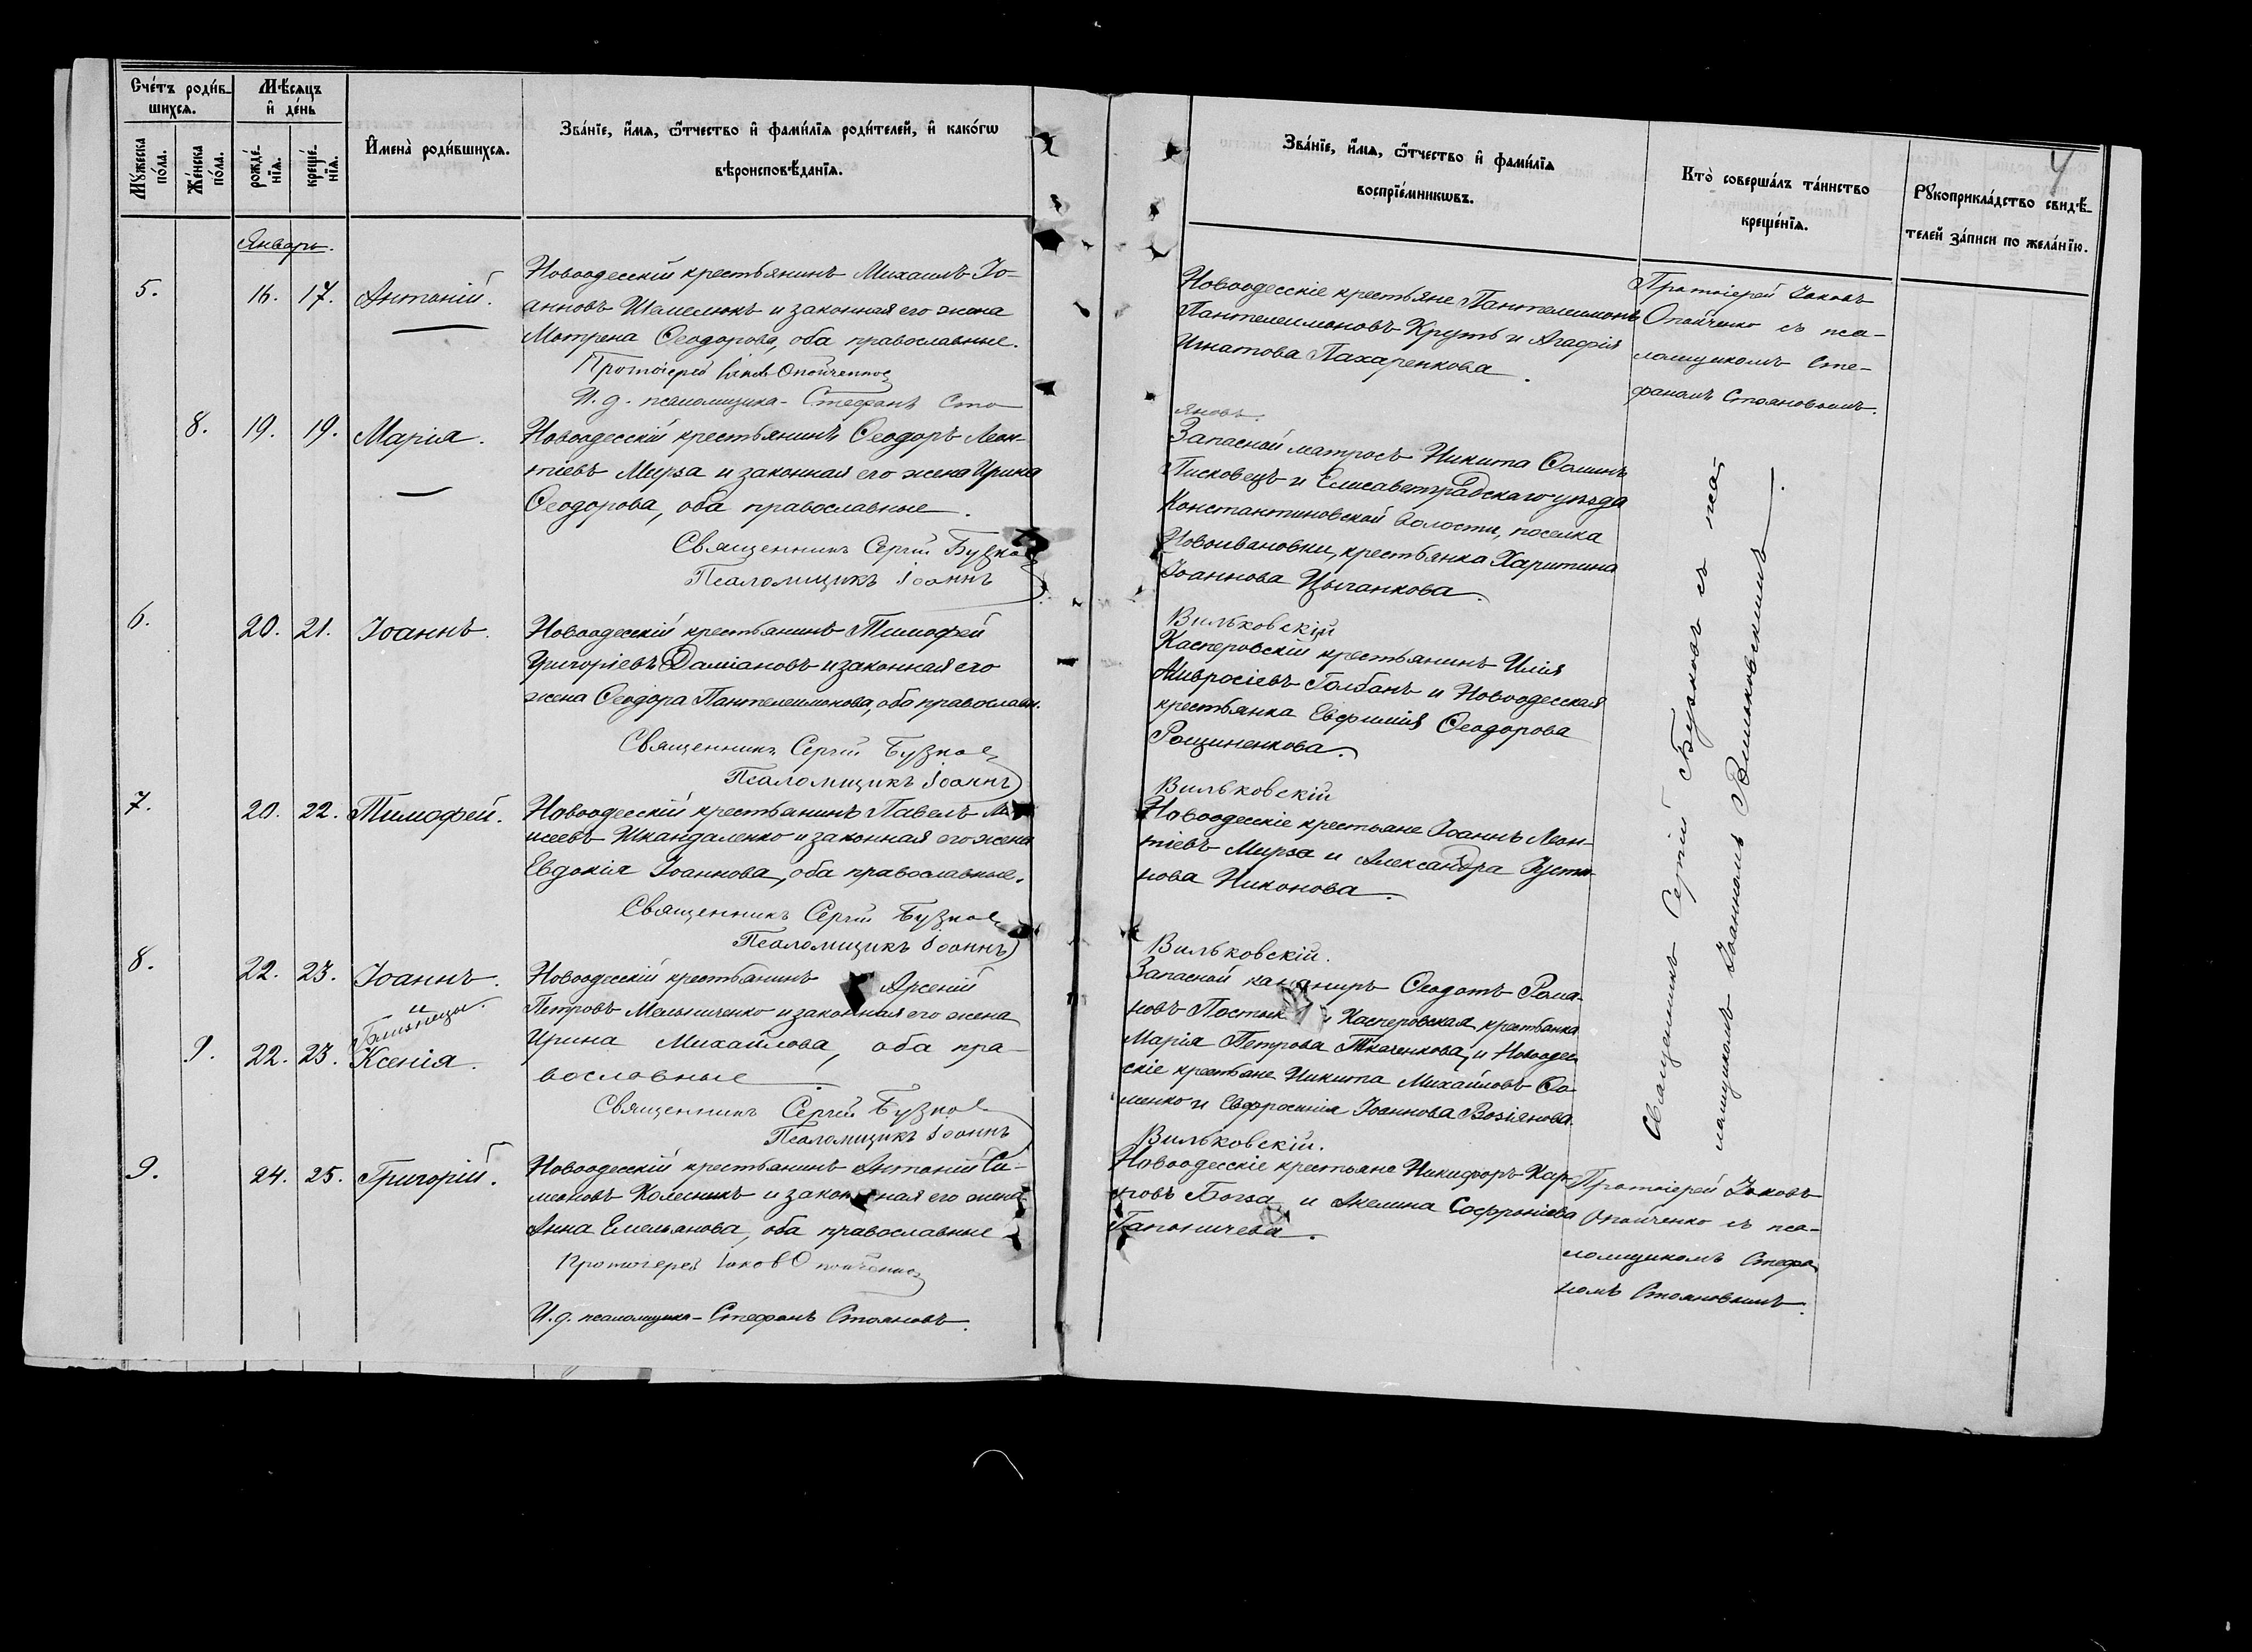 Сче́тъ роди́в-
шихсѧ.
Мѣ́сѧцъ
и҆ де́нь
Мꙋ́жеска
по́ла.
Же́нска
по́ла.
рожде́-
нїѧ.
креще́-
нїѧ.
И҆мена̀ роди́вшихсѧ.
Зва́нїе, и҆́мѧ, ѻ҆́тчество и҆ фамі́лїѧ роди́телей, и҆ како́гѡ
вѣроисповѣ́данїѧ.
Январь.
5.
16.
17.
Антоній.
Новоодесскій крестьянинъ Михаилъ Іо-
анновъ Шамелюкъ и законная его жена
Матрена Ѳеодорова, оба православные.
Протоіерей Іаков Опойченко
И. д. псаломщика - Стефанъ Сто
8.
19.
19.
Марія.
Новоодесскій крестьянинъ Ѳеодоръ Леон-
тіевъ Мирза и законная его жена Ирина
Ѳеодорова, оба православные.
Священникъ Сергій Бузков
Псаломщикъ Іоаннъ
6.
20.
21.
Іоаннъ.
Новоодесскій крестьянинъ Тимофей
Григоріевъ Даміановъ и законная его
жена Ѳеодора Пантелеимонова, оба православн.
Священникъ Сергій Бузков
Псаломщикъ Іоаннъ
7.
20.
22.
Тимофей.
Новоодесскій крестьянинъ Павелъ Мо-
исеевъ Шкандаленко и законная его жена
Евдокія Іоаннова, оба православные.
Священникъ Сергій Бузков
Псаломщикъ Іоаннъ
8.
22.
23.
Іоаннъ.
и
Близнецы.
9.
22.
23.
Ксенія.
Новоодесскій крестьянинъ Арсеній
Петровъ Мельниченко и законная его жена
Ирина Михайлова, оба пра-
вославные
Священникъ Сергій Бузков
Псаломщикъ Іоаннъ
9.
24.
25.
Григорій.
Новоодесскій крестьянинъ Антоній Си-
меоновъ Колесникъ и законная его жена
Анна Емельянова, оба православные
Протоіерей Іаков Опойченко
И. д. псаломщика - Стефанъ Стояновъ.
4
Зва́нїе, и҆́мѧ, ѻ҆́тчество и҆ фамі́лїѧ
воспрїе́мникѡвъ.
Кто̀ соверша́лъ та́инство
креще́нїѧ.
Рꙋкоприкла́дство свидѣ́-
телей за́писи по жела́нїю.
Новоодесскіе крестьяне Пантелеимонъ
Пантелеимоновъ Круть и Агафія
Игнатова Пахаренкова.
Протоіерей Іаковъ
Опойченко съ пса-
ломщикомъ Сте-
фаномъ Стояновымъ.
яновъ.
Запасной матросъ Никита Ѳоминъ
Писковецъ и Елисаветградскаго уѣзда
Константиновской волости, поселка
Новоивановки, крестьянка Харитина
Іоаннова Цыганкова.
Вильковскій
Касперовскій крестьянинъ Илія
Амвросіевъ Голбанъ и Новоодесская
крестьянка Евфимія Ѳеодорова
Рощиненкова.
Вильковскій
Новоодесскіе крестьяне Іоаннъ Леон-
тіевъ Мирза и Александра Густи-
нова Никонова.
Вильковскій.
Запасной канониръ Ѳеодотъ Рома-
новъ и Касперовская крестьянка
Марія Петрова Ткаченкова, и Новоодес-
скіе крестьяне Никита Михайловъ Ѳо-
менко и Евфросинія Іоаннова Возіянова.
Вильковскій.
Священникъ Сергій Бузковъ съ пса-
ломщикомъ Іоанномъ Вильковскимъ.
Новоодесскіе крестьяне Никифоръ Кар-
повъ Богза и Акелина Софроніева
Гапоничева.
Протоіерей Іаковъ
Опойченко съ пса-
ломщикомъ Стефа-
номъ Стояновымъ.